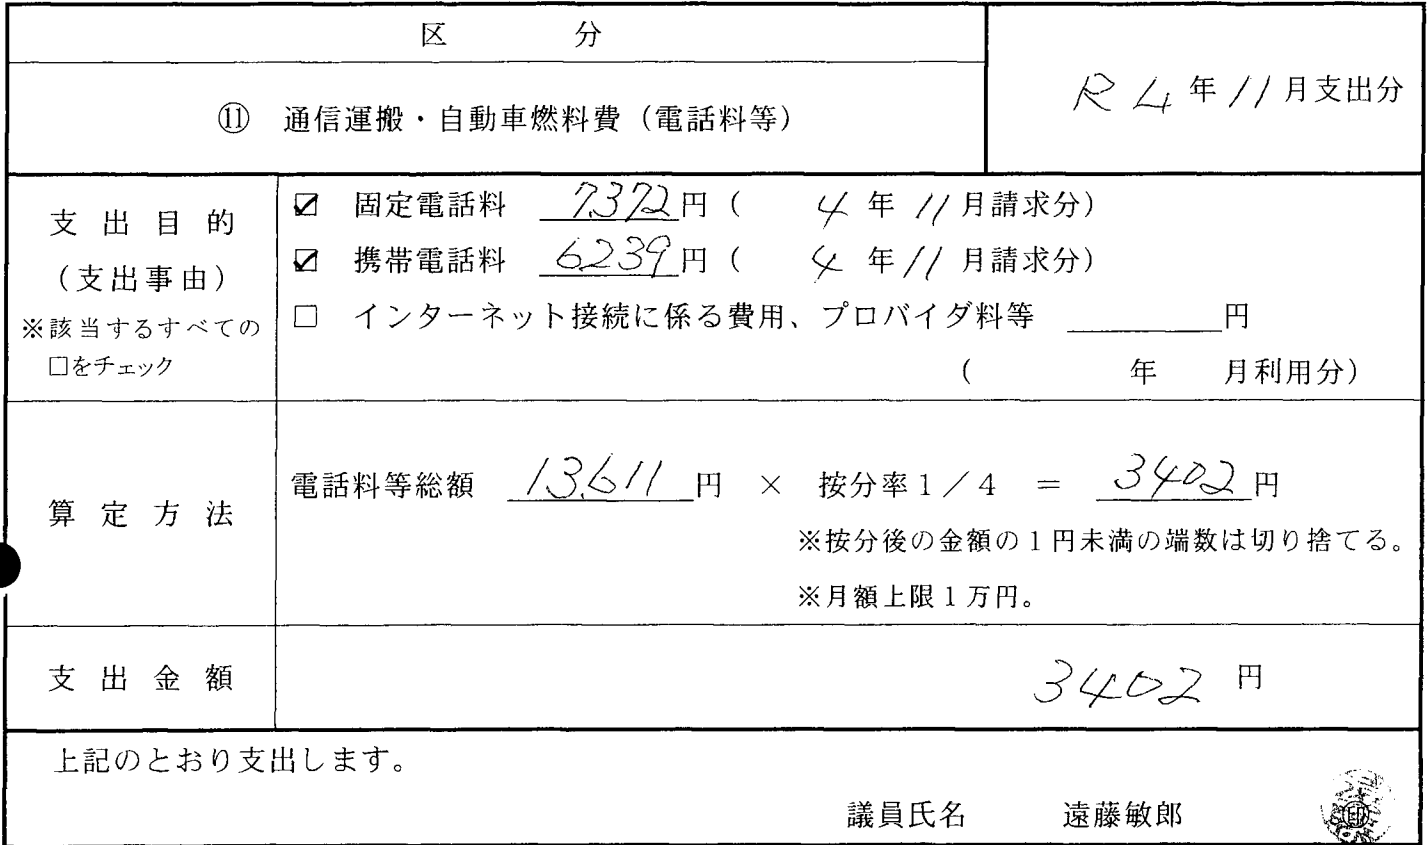 区　分
⑪　通信運搬・自動車燃料費（電話料等）
R4年11月支出分
支出目的
（支出事由）
※該当するすべての
□をチェック
☑　固定電話料　7,372円（　4年11月請求分）
☑　携帯電話料　6239円（　4年11月請求分）
□　インターネット接続に係る費用、プロバイダ料等　＿＿＿円
（　年　月利用分）
算定方法
電話料等総額　13,611円　×　按分率1／4　＝　3402円
※按分後の金額の1円未満の端数は切り捨てる。
※月額上限1万円。
支出金額
3402円
上記のとおり支出します。
議員氏名　遠藤敏郎　㊞